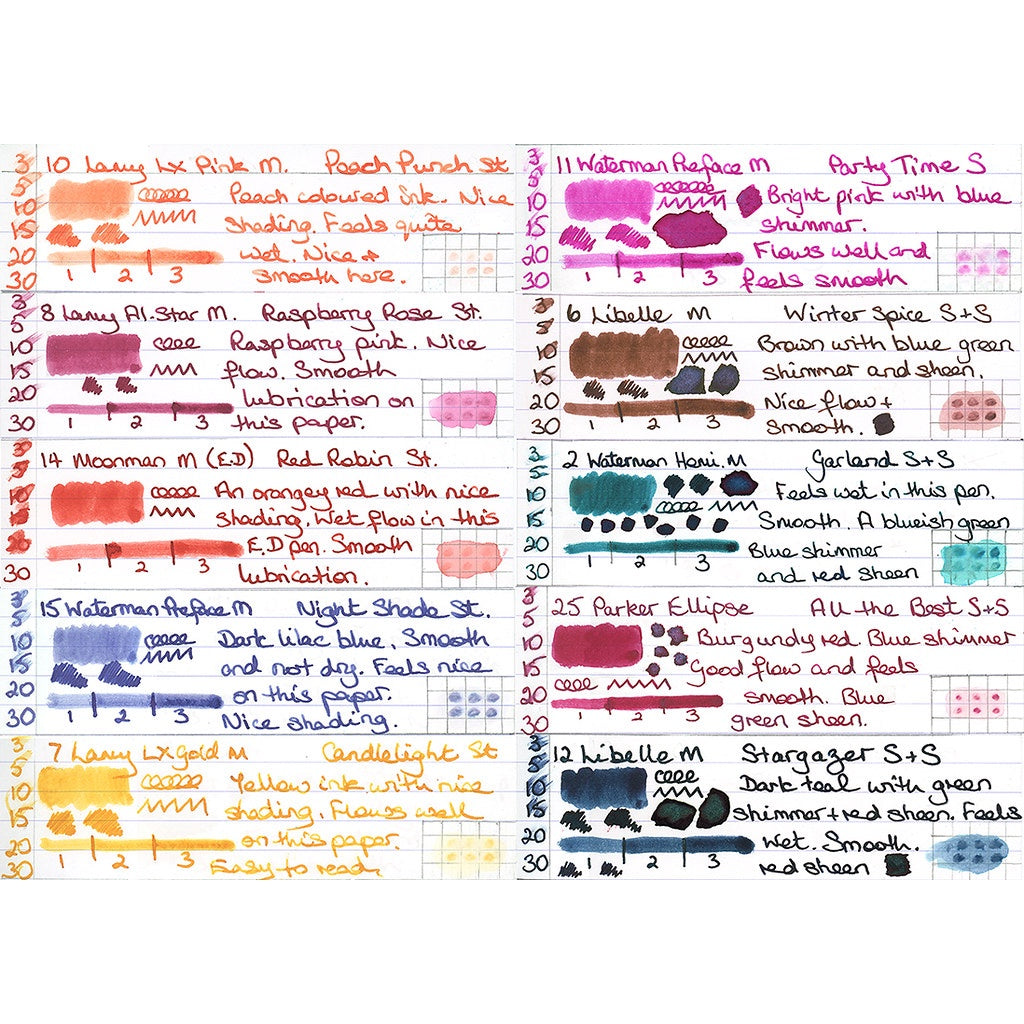 10 Lamy Lx Pink M. Peach Punch St
Peach coloured ink. Nice
shading. Feels quite
wet. Nice +
smooth here.
3
5
10
15
20
30
1 2 3
8 Lamy Al-Star M. Raspberry Rose St.
Raspberry pink. Nice
flow. Smooth
lubrication on
this paper.
3
5
10
15
20
30
1 2 3
14 Moonman M (E.D) Red Robin St.
An orangey red with nice
shading. Wet flow in this
E.D pen. Smooth
lubrication.
3
5
10
15
20
30
1 2 3
15 Waterman Preface M Night Shade St.
Dark lilac blue. Smooth
and not dry. Feels nice
on this paper.
Nice shading.
3
5
10
15
20
30
1 2 3
7 Lamy Lx Gold M Candlelight St
Yellow ink with nice
shading. Flows well
on this paper.
Easy to read.
3
5
10
15
20
30
1 2 3
11 Waterman Preface M Party Time S
Bright pink with blue
shimmer.
Flows well and
feels smooth
3
5
10
15
20
30
1 2 3
6 Libelle M Winter Spice S+S
Brown with blue green
shimmer and sheen.
Nice flow +
smooth.
3
5
10
15
20
30
1 2 3
2 Waterman Hemi. M Garland S+S
Feels wet in this pen.
Smooth. A blueish green
Blue shimmer
and red sheen
3
5
10
15
20
30
1 2 3
25 Parker Ellipse All the Best S+S
Burgundy red. Blue shimmer
Good flow and feels
smooth. Blue
green sheen.
3
5
10
15
20
30
1 2 3
12 Libelle M Stargazer S+S
Dark teal with green
shimmer + red sheen. Feels
wet. Smooth.
red sheen
3
5
10
15
20
30
1 2 3